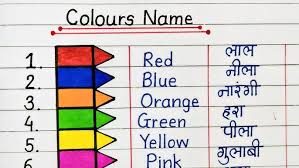 Colours Name
1. Red लाल
2. Blue नीला
3. Orange नारंगी
4. Green हरा
5. Yellow पीला
6. Pink गुलाबी